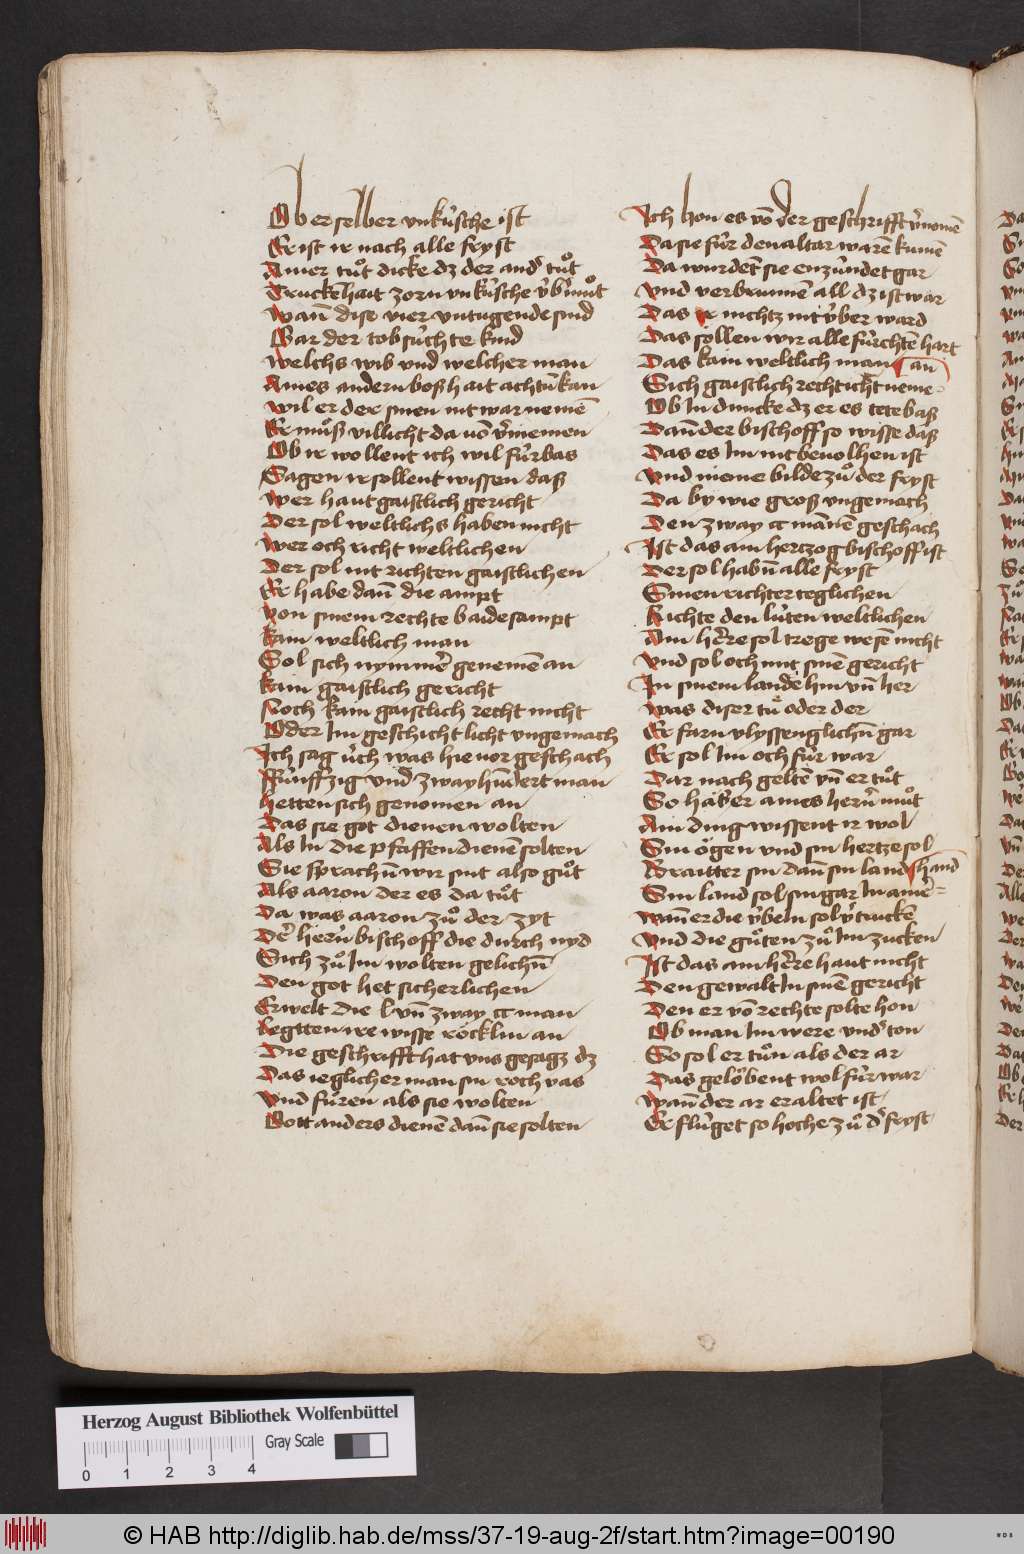 Ob er selber vnkúsche ist
Er ist ir nach alle fryst
Ainer tůt dicke dz der andˀ tůt
Truckẽhait zorn vnkúsche v́bˀmůt
Wañ dise vier vntugende sind
Gar der tobsúchte kind
Welchs wib vnd welcher man
Aines andern boßhait achtñ kan
Wil er der sinen nit war nemẽ
Er můß villicht da uõ vˀniemen
Ob ir wollent ich wil fúrbas
Sagen ir sollent wissen daß
Wer haut gaistlich gericht
Der sol weltlichs haben nicht
Wer och richt weltlichen
Der sol nit richten gaistlichen
Er habe dañ die ampt
Von sinem rechte baide sampt
Kain weltlich man
Sol sich nymmẽ genemẽ an
Kain gaistlich gericht
Noch kain gaistlich recht nicht
Oder Im geschicht licht vngemach
Ich sag úch was hie uor geschach
Fúnffzig vnd zway hundert man
Hetten sich genomen an
Das sie got dienen wolten
Als In die pfaffen dienẽ solten
Sie sprachñ wir sint also gůt
Als aaron der es da tůt
Da was aaron zů der zyt
Der herñ bischoff die durch nyd
Sich zů Im wolten gelichñ
Den got het sicherlichen
Erwelt die l vñ zway cc man
Legtten we wisse röcklin an
Die geschrifft hat vns gesagz dz
Das ieglicher man sin roch vas
Vnd fůren als sie wolten
Gott anders dienẽ dañ sie solten
Ich hon es võ der geschrifft vˀnomẽ
Da sie fúr den altar warẽ kumẽ
Da wurdẽt sie enzúndet gar
Vnd verbrunnẽ all dz ist war
Das ir nichtz nit v́ber ward
Das sollen wir alle fúrchtẽ hart
Das kain weltlich man an
Sich gaistlich recht icht neme
Ob In duncke dz er es tete baß
Dañ der bischoff so wisse daß
Das es Im nit beuolhen ist
Vnd nieme bilde zů der fryst
Da by wie groß vngemach
Den zway cc mannẽ geschach
Ist das ain hertzog bischoff ist
Der sol habñ alle fryst
Sinen richter teglichen
Richte den lúten weltlichen
Ain hˀre sol trege wesẽ nicht
Vnd sol och mit sinẽ gericht
In sinem lande hin vñ her
Was diser tů oder der
Er farn vlyssenglichñ gar
Er sol Im och fúr war
Dar nach geltẽ vñ er tůt
So hab er aines herñ můt
Ain ding wissent ir wol
Sin ögen vnd sin hertze sol
Braitter sin dañ sin land hand
Sin land sol sin gar In ainer
Wañ er die v́beln sol vˀtrucken
Vnd die gůten zů Im zucken
Ist das ain hˀre haut nicht
Den gewalt In sinẽ gericht
Den er võ rechte solte hon
Ob man Im were vndˀton
So sol er tůn als der ar
Das gelöbent wol fúr war
Wañ der ar eraltet ist
Er flúget so hoche zů dˀ fryst
Herzog August Bibliothek Wolfenbüttel
Gray Scale
0 1 2 3 4
© HAB http://diglib.hab.de/mss/37-19-aug-2f/start.htm?image=00190